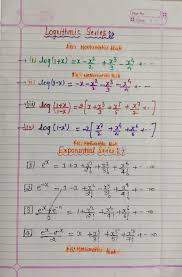 Logarithmic Series :-
(i) log(1+x) = x - x²/2 + x³/3 - x⁴/4 + ... ∞
(ii) log(1-x) = -x - x²/2 - x³/3 - x⁴/4 - ... ∞
(iii) log(1+x/1-x) = 2[x + x³/3 + x⁵/5 + x⁷/7 + ...]
(iv) log(1-x²) = -2[x²/2 + x⁴/4 + x⁶/6 + ...]
Exponential Series :-
(1) eˣ = 1 + x + x²/2! + x³/3! + x⁴/4! + ... ∞
(2) e⁻ˣ = 1 - x + x²/2! - x³/3! + x⁴/4! - ... ∞
(3) eˣ + e⁻ˣ/2 = 1 + x²/2! + x⁴/4! + x⁶/6! + ... ∞
(4) eˣ - e⁻ˣ/2 = x + x³/3! + x⁵/5! + x⁷/7! + ... ∞